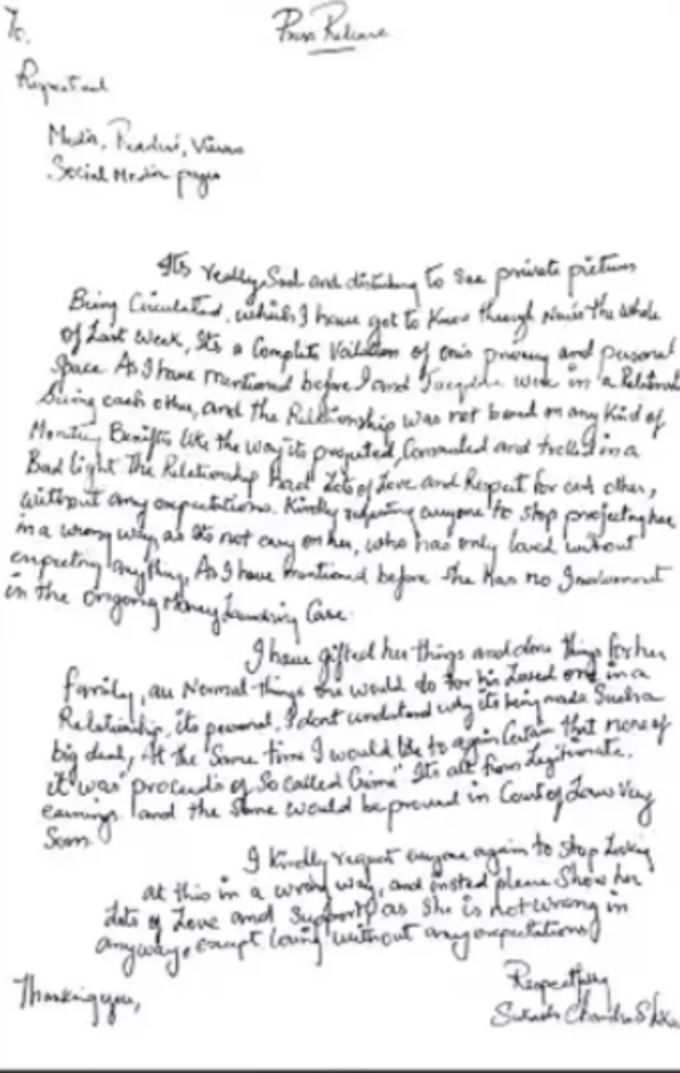 To,
Press Release
Respected
Media, Readers, Viewers
Social Media pages
Its really Sad and disturbing to see private pictures
Being Circulated, which I have got to Know through News the whole
of Last Week, Its a Complete Voilation of ones privacy and personal
Space As I have mentioned before I and Jacqueline were in a Relationship
Seeing each other, and the Relationship was not based on any Kind of
Monetary Benifits like the way its projected, Commented and trolled in a
Bad light The Relationship Had Lots of Love and Respect for each other,
without any expectations. Kindly requesting everyone to stop projecting her
in a wrong way, as Its not easy on her, who has only loved without
expecting anything, As I have mentioned before She Has no Involvement
in the ongoing Money Laundering Case.
I have gifted her things and done things for her
family, are Normal things one would do for his Loved one in a
Relationship, its personal, I dont understand why its being made Such a
big deal, At the Same time I would like to again Certain that none of
it was "proceeds of So called Crime" Its all from Legitimate.
earnings and the Same would be proved in Court of Law Very
Soon.
I kindly request everyone again to stop Looking
at this in a wrong way, and insted please Show her
Lots of Love and Support, as She is not wrong in
anyway, except loving without any expectations
Thanking you,
Respectfully
Sukash Chandra